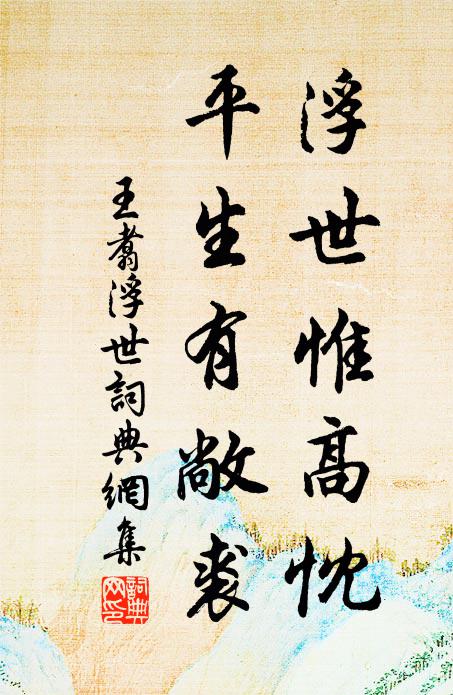 浮世惟高忱
平生有敞裘
王翥浮世詞典網集
詞典
网印